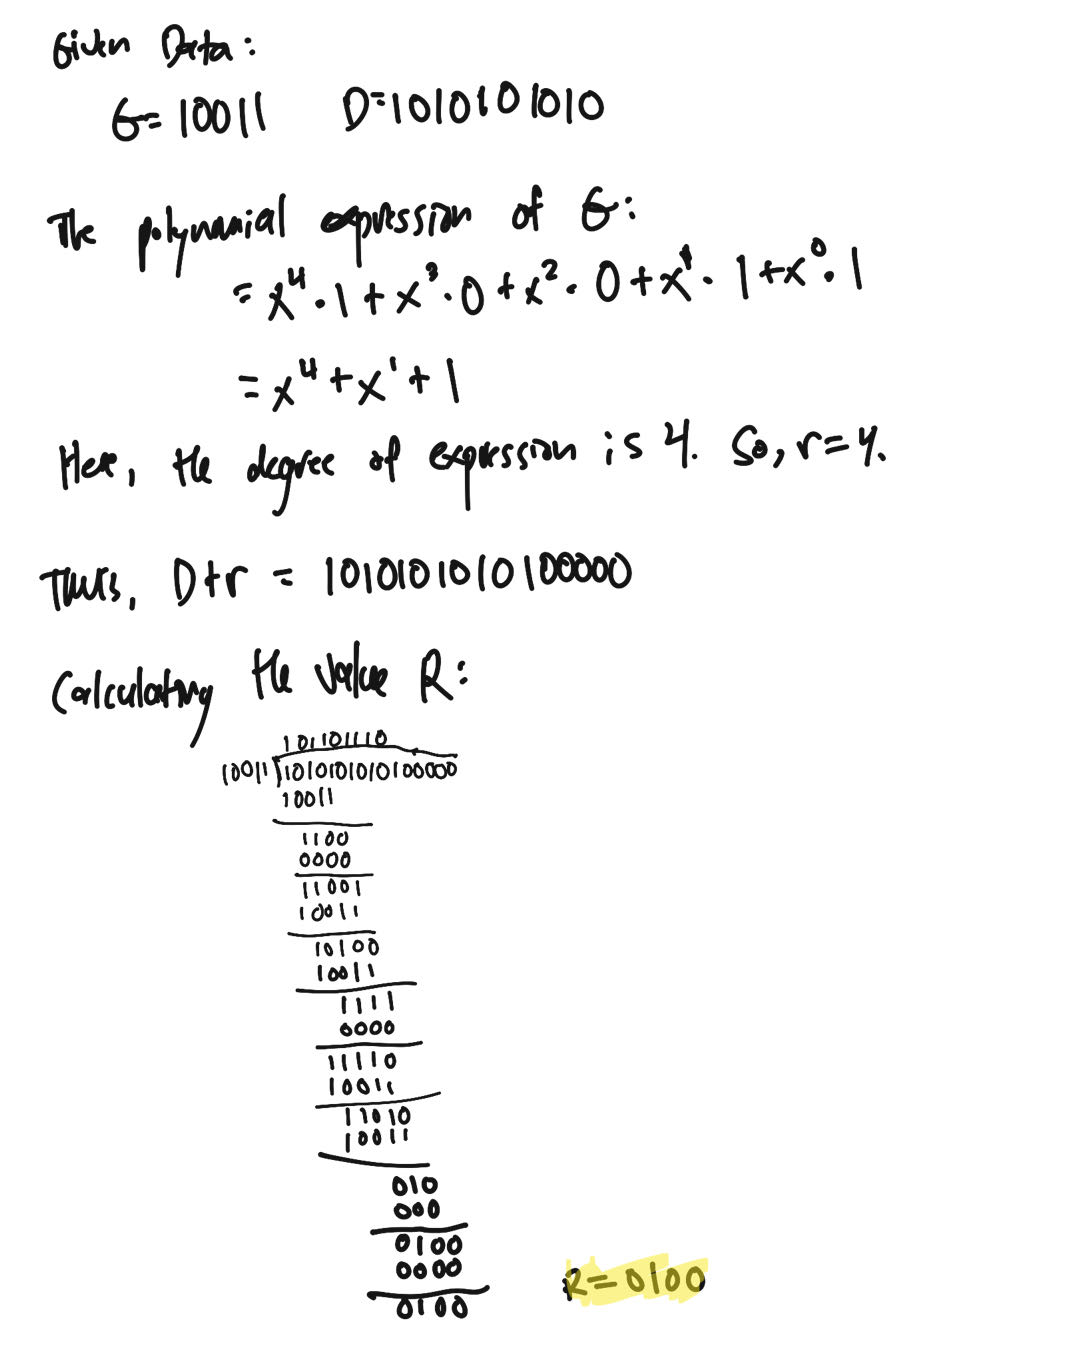 Given Data:
G= 10011 D=1010101010
The polynomial expression of G:
= x⁴·1+x³·0+x²·0+x¹·1+x⁰·1
= x⁴+x¹+1
Here, the degree of expression is 4. So, r=4.
Thus, D+r = 1010101010100000
Calculating the value R:
101101110
10011 1010101010100000
10011
1100
0000
11001
10011
10100
10011
1111
0000
11110
10011
11010
10011
010
000
0100
0000
0100 R=0100